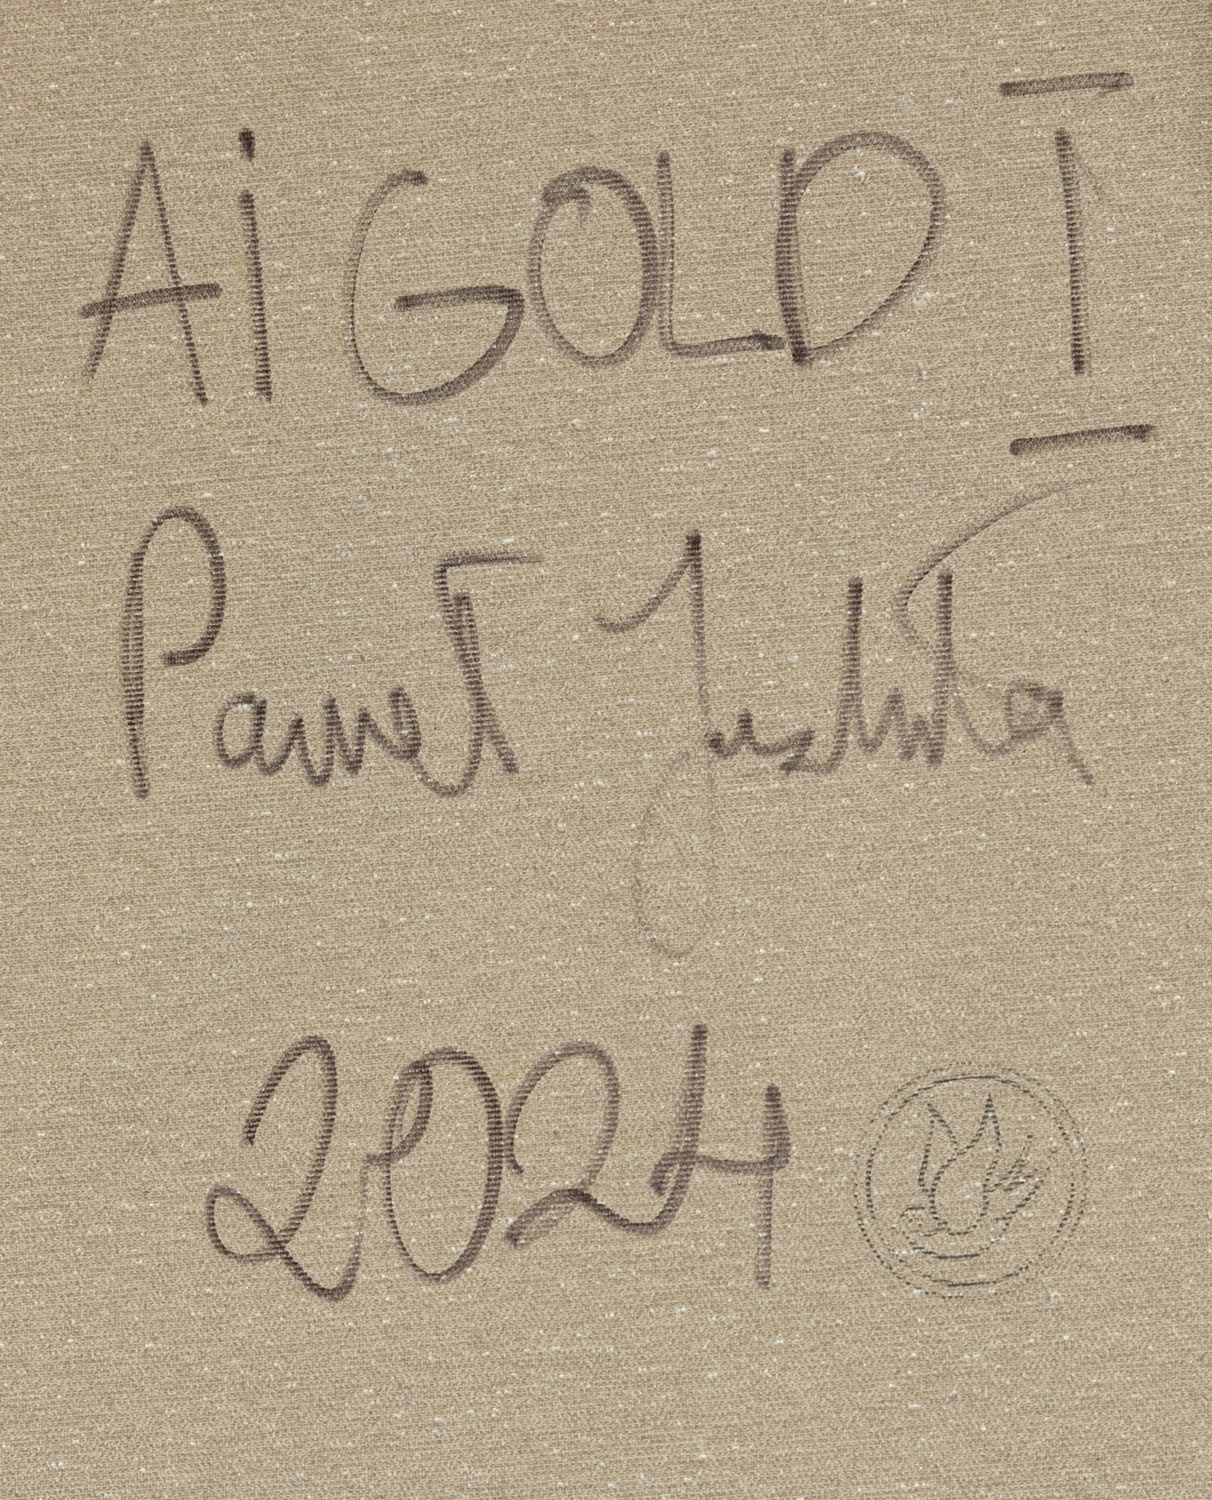 Ai GOLD I
Paweł
2024